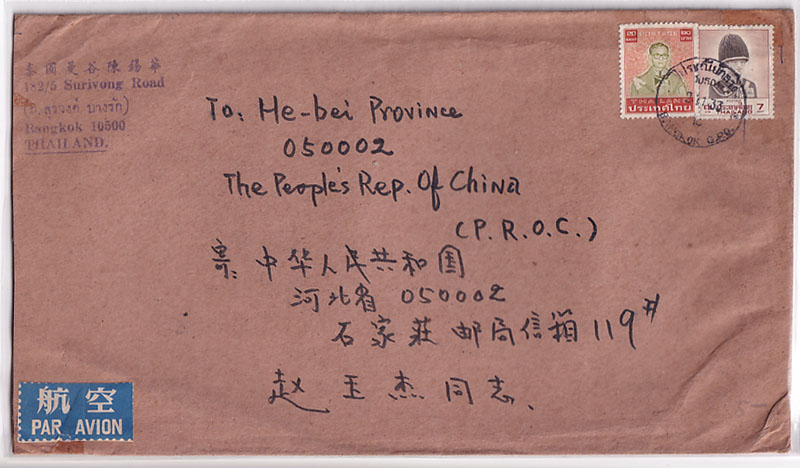 泰國曼谷陳錫華
182/5 Surivong Road
(ถ. สุรวงค์ บางรัก)
Bangkok 10500
THAILAND.
POSTAGE
THAILAND
ประเทศไทย
7
BANGKOK G.P.O.
To: He-bei Province
050002
The People's Rep. Of China
(P. R. O. C.)
中华人民共和国
河北省 050002
石家莊 邮局信箱 119#
赵玉杰同志.
航空
PAR AVION